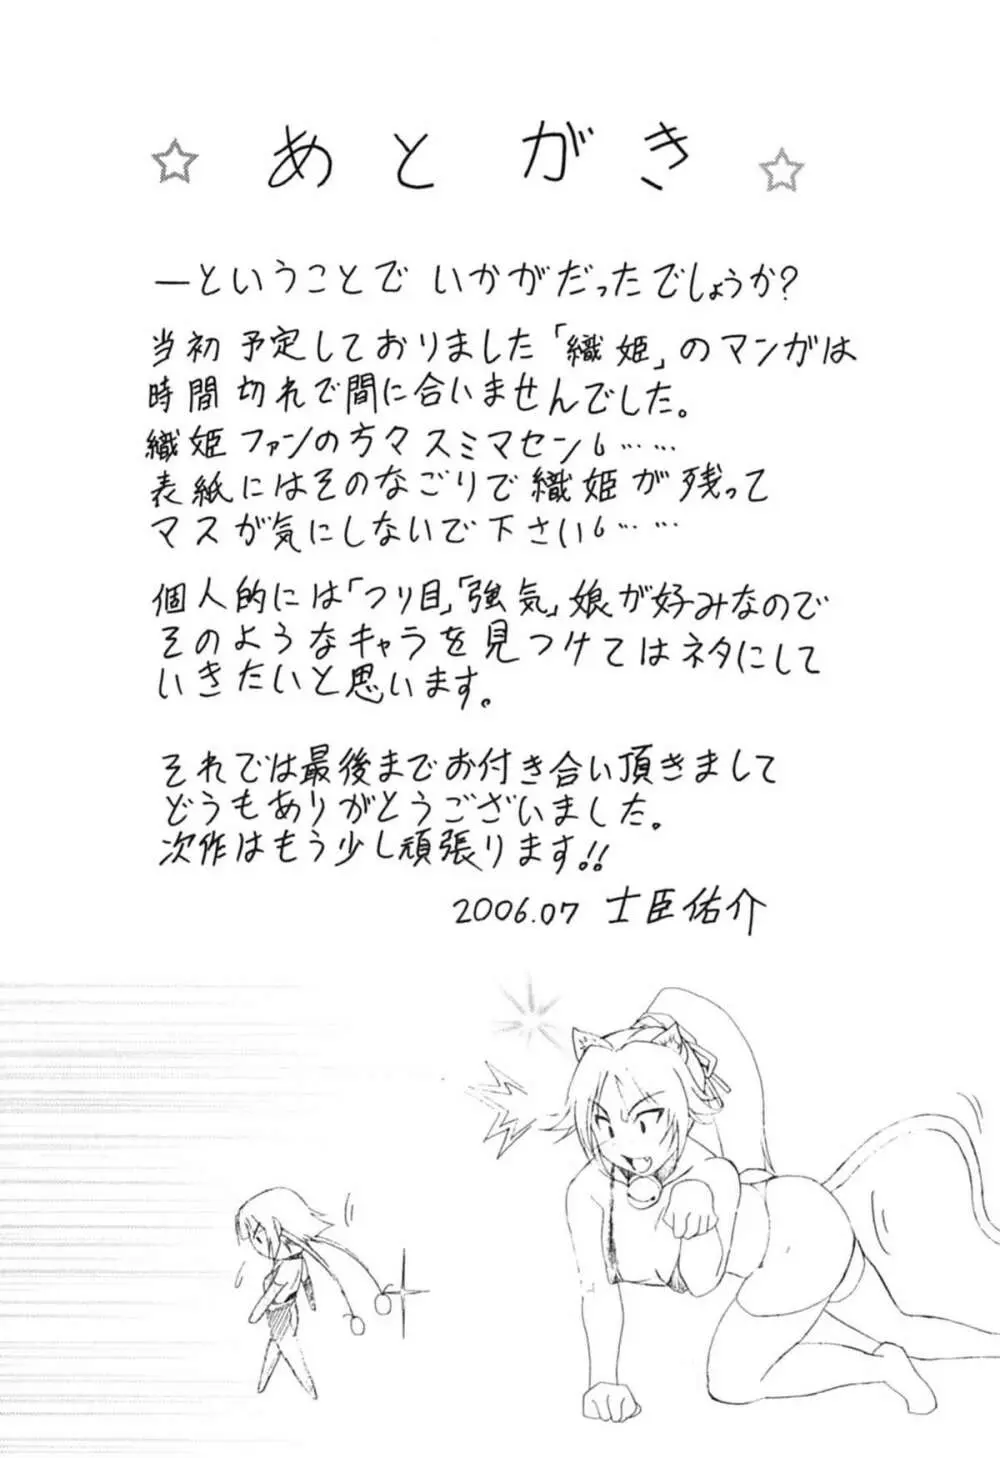 ☆ あとがき ☆
―ということで いかがだったでしょうか?
当初予定しておりました「織姫」のマンガは
時間切れで間に合いませんでした。
織姫ファンの方々スミマセン……
表紙にはそのなごりで織姫が残って
マスが気にしないで下さい……
個人的には「つり目」「強気」娘が好みなので
そのようなキャラを見つけてはネタにして
いきたいと思います。
それでは最後までお付き合い頂きまして
どうもありがとうございました。
次作はもう少し頑張ります!!
2006.07 士臣佑介